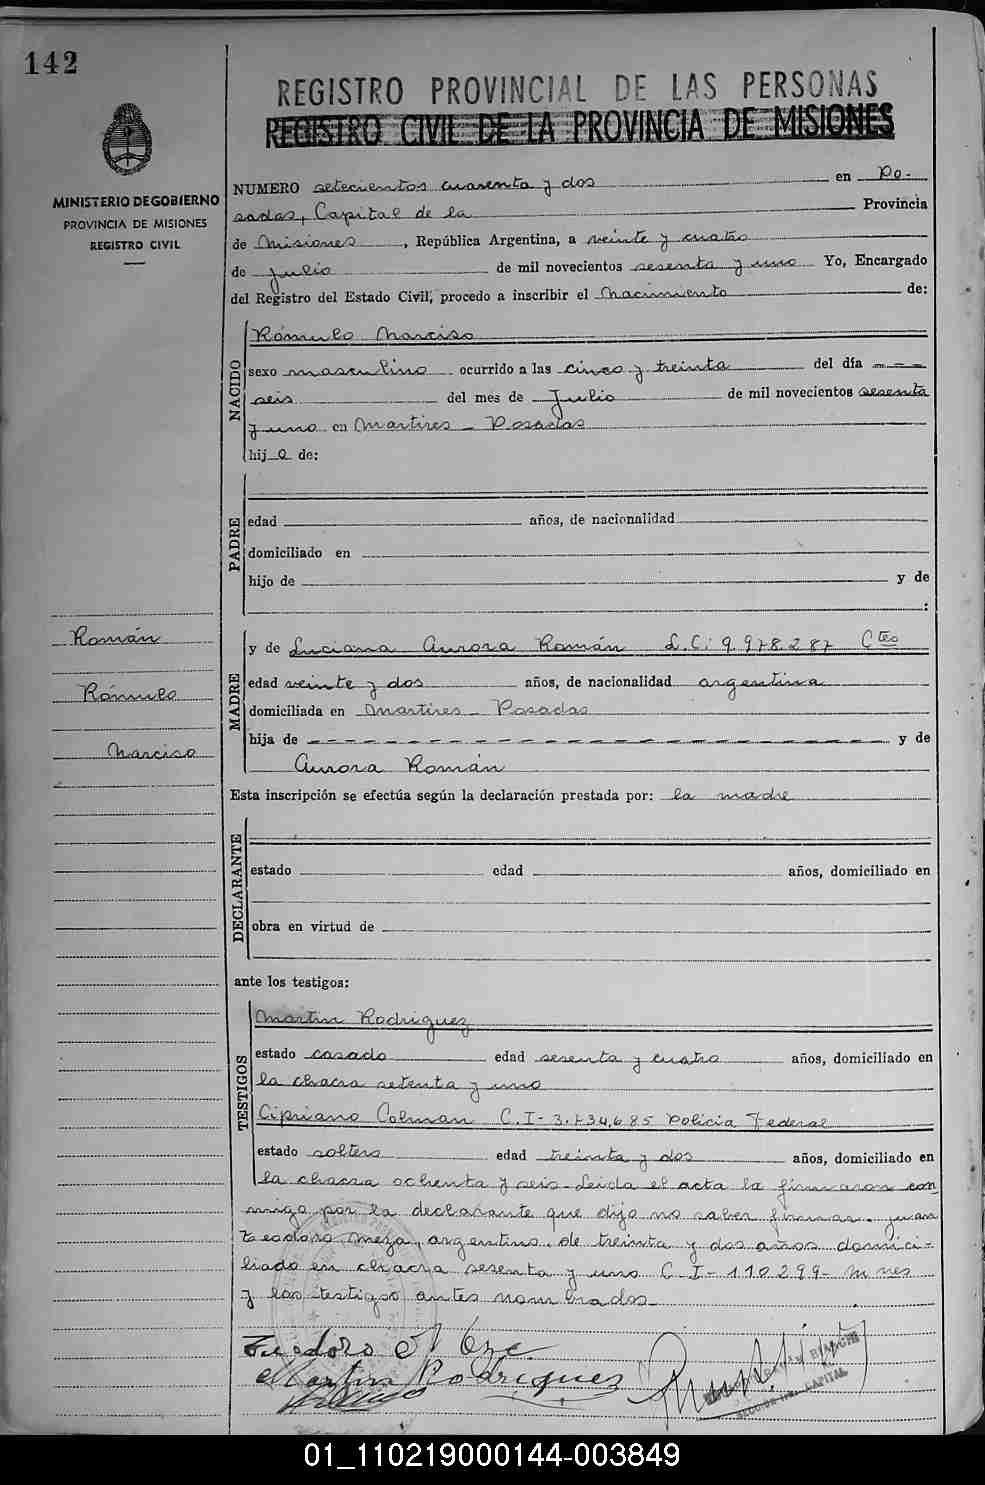 142
REGISTRO PROVINCIAL DE LAS PERSONAS
REGISTRO CIVIL DE LA PROVINCIA DE MISIONES
MINISTERIO DE GOBIERNO
PROVINCIA DE MISIONES
REGISTRO CIVIL
NUMERO setecientos cuarenta y dos en Po-
sadas, Capital de la Provincia
de Misiones, República Argentina, a veinte y cuatro
de Julio de mil novecientos sesenta y uno Yo, Encargado
del Registro del Estado Civil, procedo a inscribir el Nacimiento de:
NACIDO
Rómulo Narciso
sexo masculino ocurrido a las cinco y treinta del día ---
seis del mes de Julio de mil novecientos sesenta
y uno en Martires - Posadas
hij o de:
PADRE
edad años, de nacionalidad
domiciliado en
hijo de y de
:
Román
Rómulo
Narciso
MADRE
y de Luciana Aurora Román L.C: 9.978.287 Ctes
edad veinte y dos años, de nacionalidad argentina
domiciliada en Martires - Posadas
hija de y de
Aurora Román
Esta inscripción se efectúa según la declaración prestada por: la madre
DECLARANTE
estado edad años, domiciliado en
obra en virtud de
ante los testigos:
TESTIGOS
Martin Rodriguez
estado casado edad sesenta y cuatro años, domiciliado en
la chacra setenta y uno
Cipriano Colman C.I- 3.734.685 Policia Federal
estado soltero edad treinta y dos años, domiciliado en
la chacra ochenta y seis - Leida el acta la firmaron con
migo por la declarante que dijo no saber firmar. Juan
Teodoro Meza, argentino, de treinta y dos años domici-
liado en chacra sesenta y uno C.I- 110299- Mnes
y los testigso antes nombrados-
Martin Rodriguez
01_110219000144-003849